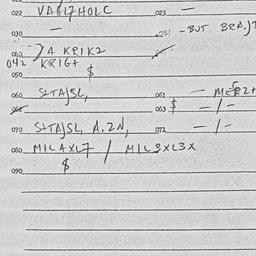 022 VAGL7HOLC 023 —
030 — 031 — BUT BRA
040 7A KRIK2
042 KRIGt
050 $
060 StTAJSL, 061 — MER2t
062 063 $ — / —
070 StTAJSL, A.2N, 072 — / —
080 MILAXL7 / MIL3XL3X
090 $